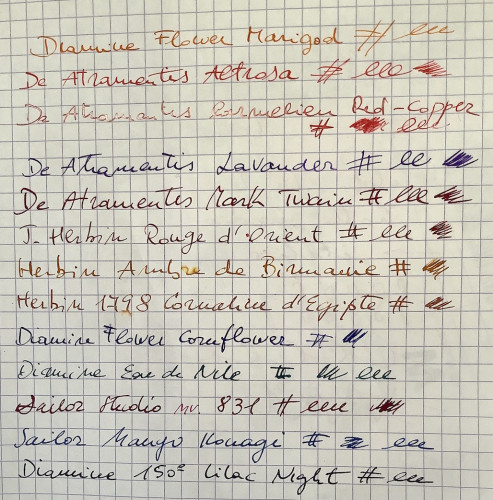 Diamine Flower Marigod # eee
De Atramentis Altrosa # eee
De Atramentis Carmelien Red-Copper
# eee
De Atramentis Lavander # ee
De Atramentis Mark Twain # eee
J. Herbin Rouge d'Orient # eee
Herbin Ambre de Birmanie #
Herbin 1798 Cornaline d'Egipte #
Diamine Flower Cornflower #
Diamine Eau de Nile # eee
Sailor Studio nr. 831 # eee
Sailor Manyo Konagi # eee
Diamine 150º Lilac Night # eee